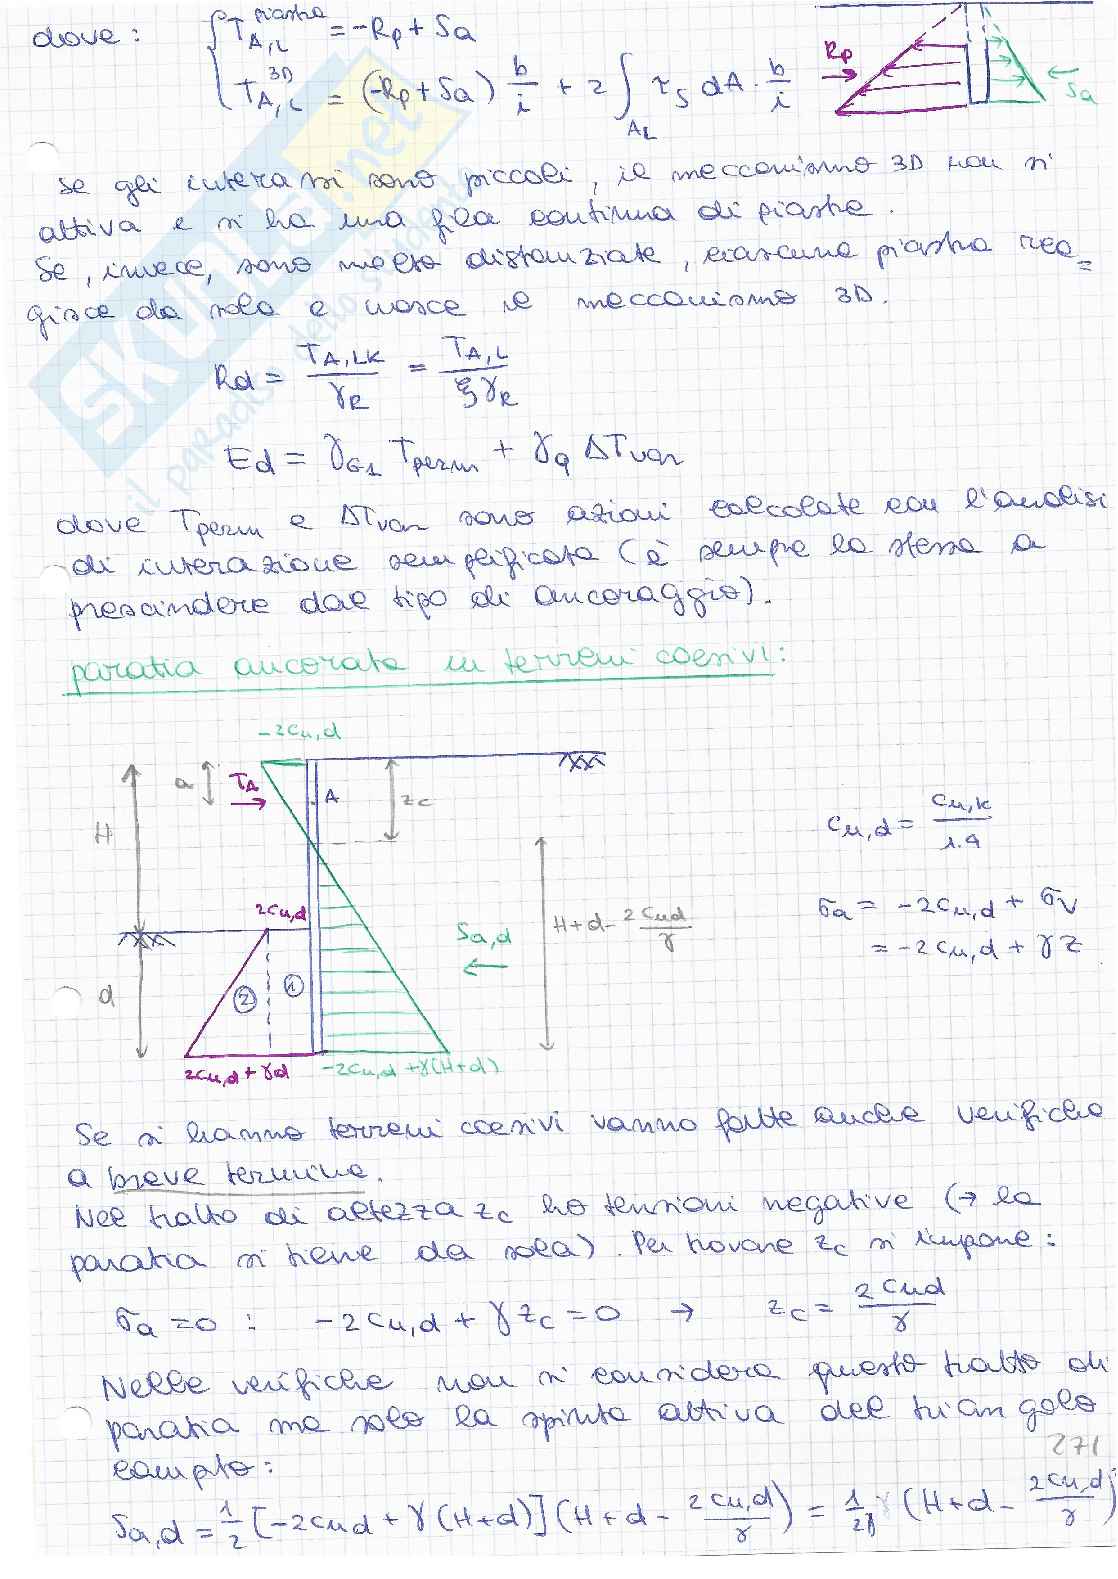 dove: { T_{A,L}^{piastra} = -Rp + Sa
T_{A,L}^{3D} = (-Rp + Sa) b/i + 2 ∫_{AL} τ_s dA · b/i
Rp
Sa
Se gli interassi sono piccoli, il meccanismo 3D non si
attiva e si ha una fila continua di piastre.
Se, invece, sono molto distanziate, ciascuna piastra rea=
gisce da sola e nasce il meccanismo 3D.
Rd = T_{A,LK}/γ_R = T_{A,L}/ξγ_R
Ed = γ_{G1} Tperm + γ_Q ΔTvar
dove Tperm e ΔTvar sono azioni calcolate con l'analisi
di interazione semplificata (è sempre la stessa a
prescindere dal tipo di ancoraggio).
paratia ancorata in terreni coesivi:
-2cu,d
a
TA
A
zc
H
cu,d = cu,k/1.4
2cu,d
Sa,d
H+d- 2cud/γ
σa = -2cu,d + σv
= -2cu,d + γz
d
2
1
2cu,d + γd
-2cu,d + γ(H+d)
Se si hanno terreni coesivi vanno fatte anche verifiche
a breve termine.
Nel tratto di altezza zc ho tensioni negative (→ la
paratia si tiene da sola). Per trovare zc si impone:
σa = 0 : -2cu,d + γzc = 0 → zc = 2cud/γ
Nelle verifiche non si considera questo tratto di
paratia ma solo la spinta attiva del triangolo
campito:
271
Sa,d = 1/2 [-2cud + γ(H+d)] (H+d- 2cu,d/γ) = 1/2 γ (H+d- 2cu,d/γ)
SKUOLA.net
il paradiso dello studente